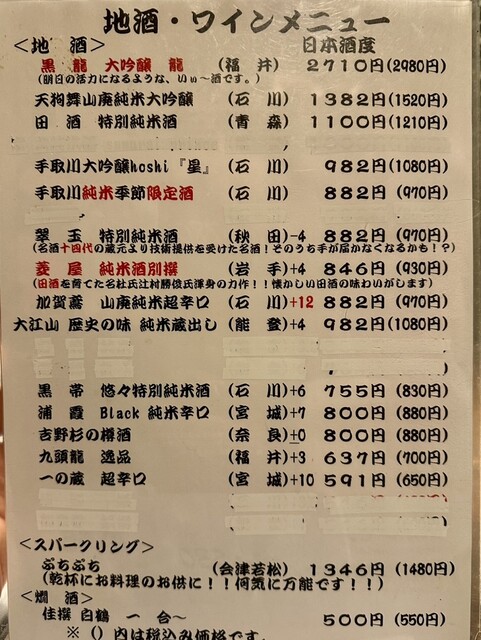 地酒・ワインメニュー
＜地 酒＞ 日本酒度
黒 龍 大吟醸 龍 (福 井) 2710円(2980円)
(明日の活力になるような、いぃ～酒です。)
天狗舞山廃純米大吟醸 (石 川) 1382円(1520円)
田 酒 特別純米酒 (青 森) 1100円(1210円)
手取川大吟醸hoshi『星』 (石 川) 982円(1080円)
手取川純米季節限定酒 (石 川) 882円(970円)
翠 玉 特別純米酒 (秋 田)-4 882円(970円)
(名酒十四代の蔵元より技術提供を受けた名酒！そのうち手が届かなくなるかも！？)
菱 屋 純米酒別撰 (岩 手)+4 846円(930円)
(田酒を育てた名杜氏辻村勝俊氏渾身の力作！！懐かしい田酒の味わいがします)
加賀鳶 山廃純米超辛口 (石 川)+12 882円(970円)
大江山 歴史の味 純米蔵出し (能 登)+4 982円(1080円)
黒 帯 悠々特別純米酒 (石 川)+6 755円(830円)
浦 霞 Black 純米辛口 (宮 城)+7 800円(880円)
吉野杉の樽酒 (奈 良)±0 800円(880円)
九頭龍 逸品 (福 井)+3 637円(700円)
一の蔵 超辛口 (宮 城)+10 591円(650円)
＜スパークリング＞
ぷちぷち (会津若松) 1346円(1480円)
(乾杯にお料理のお供に！！何気に万能です！！)
＜燗 酒＞
佳撰 白鶴 一 合～ 500円(550円)
※()内は税込み価格です。